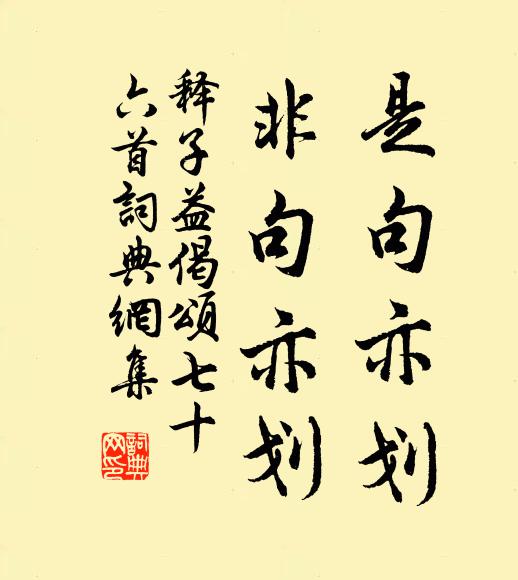 是句亦划
非句亦划
释子益偈頌七十
六首詞典網集
詞典網印